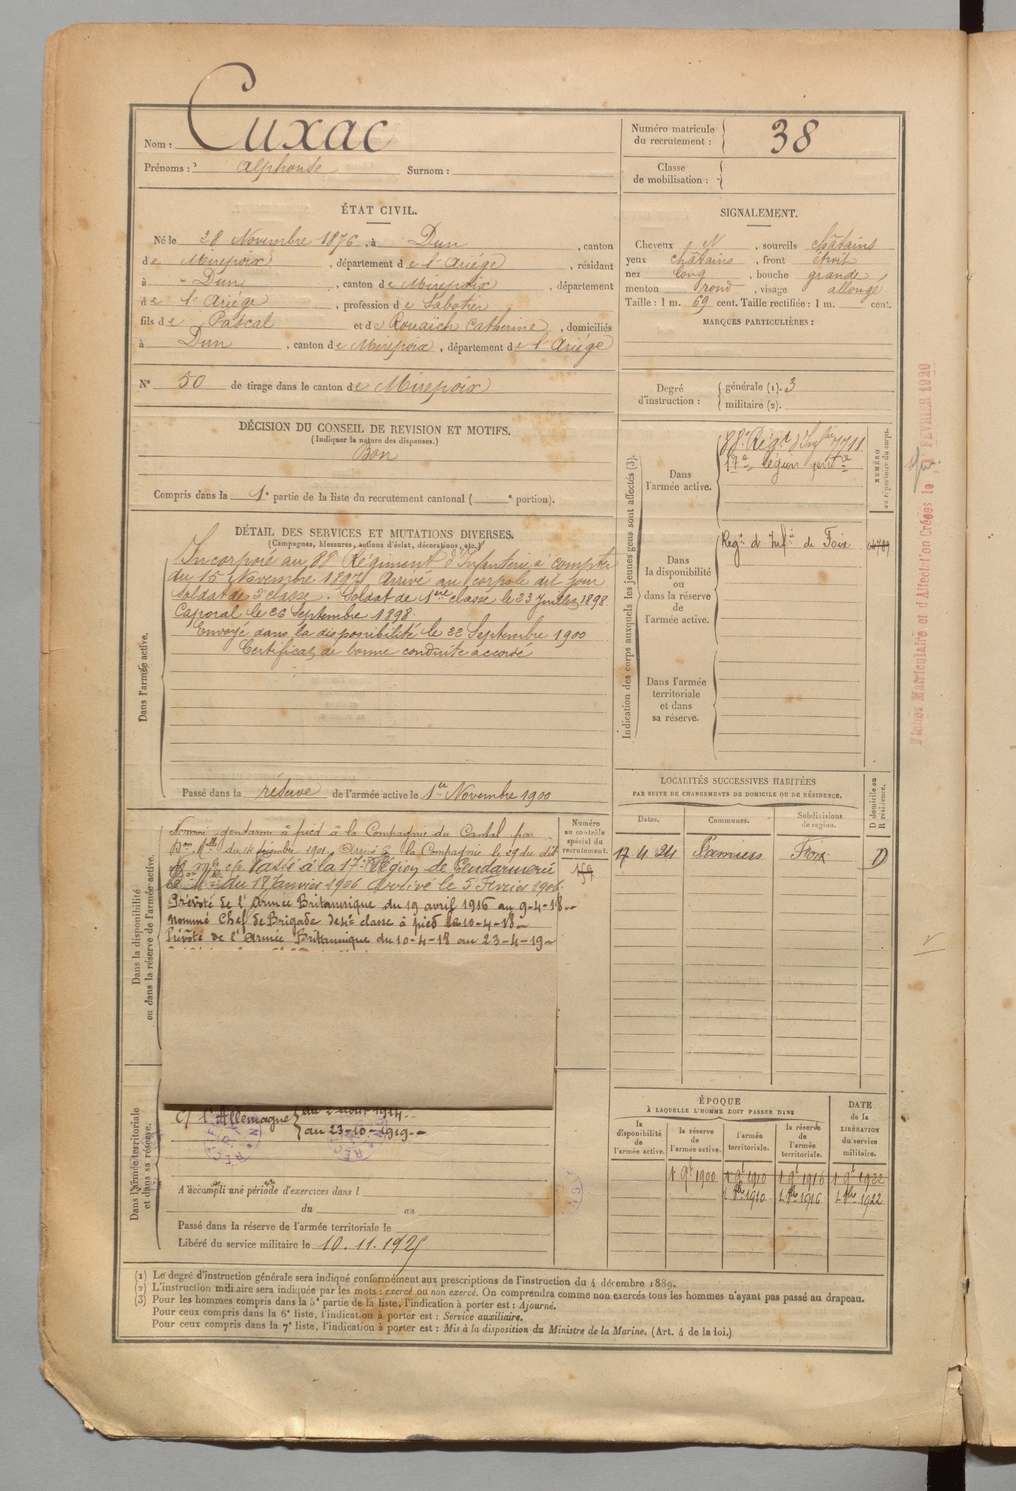 Nom : Cuxac
Prénoms : Alphonse Surnom :
Numéro matricule du recrutement : 38
Classe de mobilisation :
ÉTAT CIVIL.
Né le 28 Novembre 1876, à Dun, canton
de Mirepoix, département de l'Ariège, résidant
à Dun, canton de Mirepoix, département
de l'Ariège, profession de Sabotier
fils de Pascal et de Rouaich Catherine, domiciliés
à Dun, canton de Mirepoix, département de l'Ariège
N° 50 de tirage dans le canton de Mirepoix
SIGNALEMENT.
Cheveux N, sourcils châtains
yeux châtains, front étroit
nez long, bouche grande
menton rond, visage allongé
Taille : 1 m. 69 cent. Taille rectifiée : 1 m. cent.
MARQUES PARTICULIÈRES :
Degré d'instruction : générale (1). 3
militaire (2).
DÉCISION DU CONSEIL DE REVISION ET MOTIFS.
(Indiquer la nature des dispenses.)
Bon
Compris dans la 1e partie de la liste du recrutement cantonal ( e portion).
DÉTAIL DES SERVICES ET MUTATIONS DIVERSES.
(Campagnes, blessures, actions d'éclat, décorations, etc.)
Dans l'armée active.
Incorporé au 88e Régiment d'Infanterie à compter
du 15 Novembre 1897. Arrivé au corps le dit jour
Soldat de 2e classe. Soldat de 1ère classe le 23 Juillet 1898
Caporal le 26 Septembre 1898
Envoyé dans la disponibilité le 22 Septembre 1900
Certificat de bonne conduite accordé
Passé dans la réserve de l'armée active le 1er Novembre 1900
Indication des corps auxquels les jeunes gens sont affectés (3).
NUMÉRO au répertoire du corps.
Dans l'armée active.
88e Régt d'Infie 7711
17e légion gendie
Dans la disponibilité ou dans la réserve de l'armée active.
Regt d'Infie de Foix
Dans l'armée territoriale et dans sa réserve.
Fiches Matriculaire et d'Affectation Créées le FÉVRIER 1920
LOCALITÉS SUCCESSIVES HABITÉES
PAR SUITE DE CHANGEMENTS DE DOMICILE OU DE RÉSIDENCE.
Dates. Communes. Subdivisions de région. D domicile ou R résidence.
17 4 24 Pamiers Foix D
Dans la disponibilité ou dans la réserve de l'armée active.
Numéro au contrôle spécial du recrutement.
Nommé gendarme à pied à la Compagnie du Cantal par
du 14 décembre 1901. Arrivé à la Compagnie le 29 du dit
Passé à la 17e Légion de Gendarmerie
du 18 Janvier 1906 Arrivé le 5 Février 1906
Prévôté de l'Armée Britannique du 19 avril 1916 au 9-4-18
nommé Chef de Brigade de 4e classe à pied le 10-4-18
Prévôté de l'Armée Britannique du 10-4-18 au 23-4-19
c/ l'Allemagne du 2 août 1914
au 23-10-1919
Dans l'armée territoriale et dans sa réserve.
A accompli une période d'exercices dans l
du au
Passé dans la réserve de l'armée territoriale le
Libéré du service militaire le 10.11.1925
ÉPOQUE
À LAQUELLE L'HOMME DOIT PASSER DANS
la disponibilité de l'armée active. la réserve de l'armée active. l'armée territoriale. la réserve de l'armée territoriale.
DATE de la LIBÉRATION du service militaire.
1 9e 1900 1 9e 1910 1 9e 1916 1 9e 1922
1 8bre 1910 1 8bre 1916 1 8bre 1922
(1) Le degré d'instruction générale sera indiqué conformément aux prescriptions de l'instruction du 4 décembre 1889.
(2) L'instruction militaire sera indiquée par les mots : exercé ou non exercé. On comprendra comme non exercés tous les hommes n'ayant pas passé au drapeau.
(3) Pour les hommes compris dans la 5e partie de la liste, l'indication à porter est : Ajourné.
Pour ceux compris dans la 6e liste, l'indication à porter est : Service auxiliaire.
Pour ceux compris dans la 7e liste, l'indication à porter est : Mis à la disposition du Ministre de la Marine. (Art. 4 de la loi.)